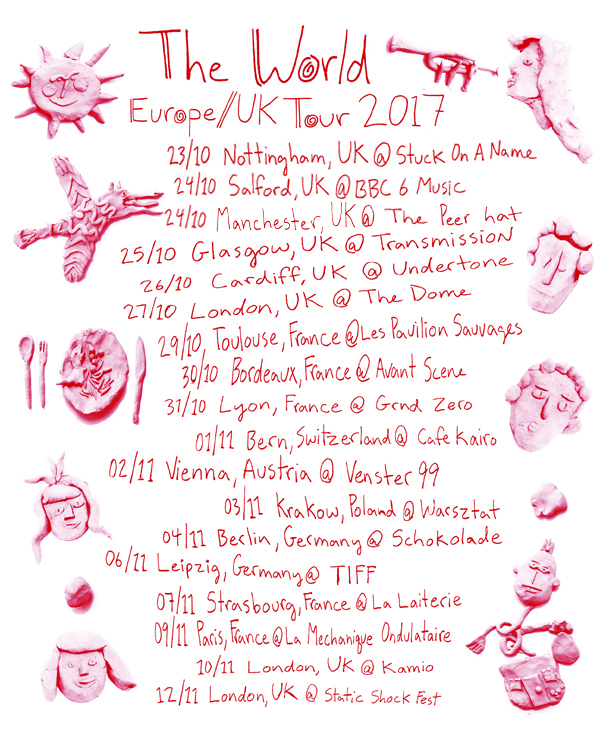 The World
Europe//UK Tour 2017
23/10 Nottingham, UK @ Stuck On A Name
24/10 Salford, UK @ BBC 6 Music
24/10 Manchester, UK @ The Peer hat
25/10 Glasgow, UK @ Transmission
26/10 Cardiff, UK @ Undertone
27/10 London, UK @ The Dome
29/10 Toulouse, France @ Les Pavilion Sauvages
30/10 Bordeaux, France @ Avant Scene
31/10 Lyon, France @ Grnd Zero
01/11 Bern, Switzerland @ Cafe Kairo
02/11 Vienna, Austria @ Venster 99
03/11 Krakow, Poland @ Warsztat
04/11 Berlin, Germany @ Schokolade
06/11 Leipzig, Germany @ TIFF
07/11 Strasbourg, France @ La Laiterie
09/11 Paris, France @ La Mechanique Ondulataire
10/11 London, UK @ Kamio
12/11 London, UK @ Static Shock Fest